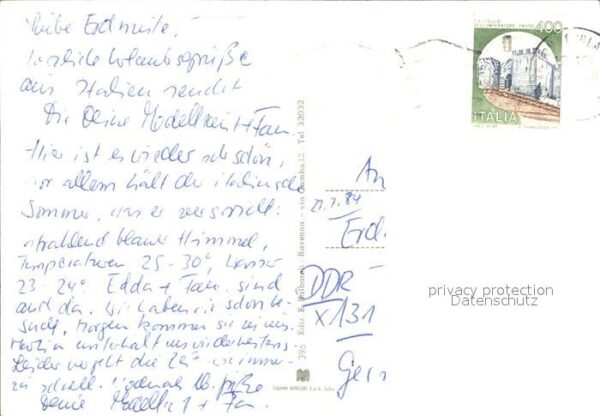 Liebe Erdmute,
herzliche Urlaubsgrüße
aus Italien sendet
Dir Deine + Fam.
Hier ist es wieder sehr schön,
vor allem hält der italienische
Sommer, was er verspricht:
strahlend blauer Himmel,
Temperaturen 25-30°, Wasser
23-24°. Edda + Fam. sind
auch da. Wir haben sie schon be-
sucht, Morgen kommen sie zu uns.
unterhält uns wieder bestens.
Leider vergeht die Zeit wie immer
zu schnell. Nochmals lb. Grüße
Deine + Fam.
396 Ediz. - Ravenna - via Gamba 12 - Tel 32032
CASTELLO
400
ITALIA
An
21.7.84
Erd
DDR
X131
Ger
privacy protection
Datenschutz